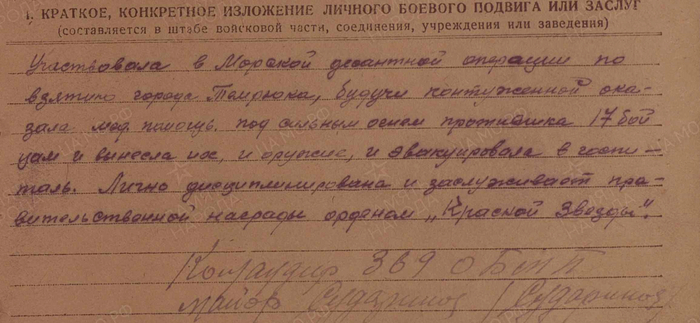 1. КРАТКОЕ, КОНКРЕТНОЕ ИЗЛОЖЕНИЕ ЛИЧНОГО БОЕВОГО ПОДВИГА ИЛИ ЗАСЛУГ
(составляется в штабе войсковой части, соединения, учреждения или заведения)
Участвовала в Морской десантной операции по
взятию города Темрюка, будучи контуженной ока-
зала мед. помощь. под сильным огнем противника 17 бой
цам и вынесла их, и оружие, и эвакуировала в госпи-
таль. Лично дисциплинирована и заслуживает пра-
вительственной награды орденом „Красной Звезды".
Командир 369 ОБМП
майор Сударинов /Сударинов